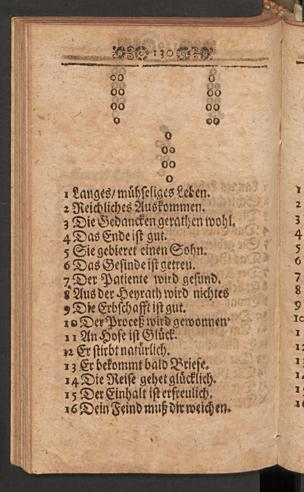 130
1 Langes/ mühseliges Leben.
2 Reichliches Auskommen.
3 Die Gedancken gerathen wohl.
4 Das Ende ist gut.
5 Sie gebieret einen Sohn.
6 Das Gesinde ist getreu.
7 Der Patiente wird gesund.
8 Aus der Heyrath wird nichtes
9 Die Erbschafft ist gut.
10 Der Proceß wird gewonnen.
11 An Hofe ist Glück.
12 Er stirbt natürlich.
13 Er bekommt bald Briefe.
14 Die Reise gehet glücklich.
15 Der Einhalt ist erfreulich.
16 Dein Feind muß dir weichen.